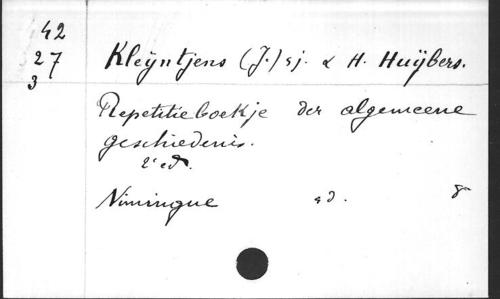 42
27
3
Kleÿntjens (J.) sj. & H. Huÿbers.
Repetitieboekje der algemeene
geschiedenis.
2e ed.
Nimingue sd. 8